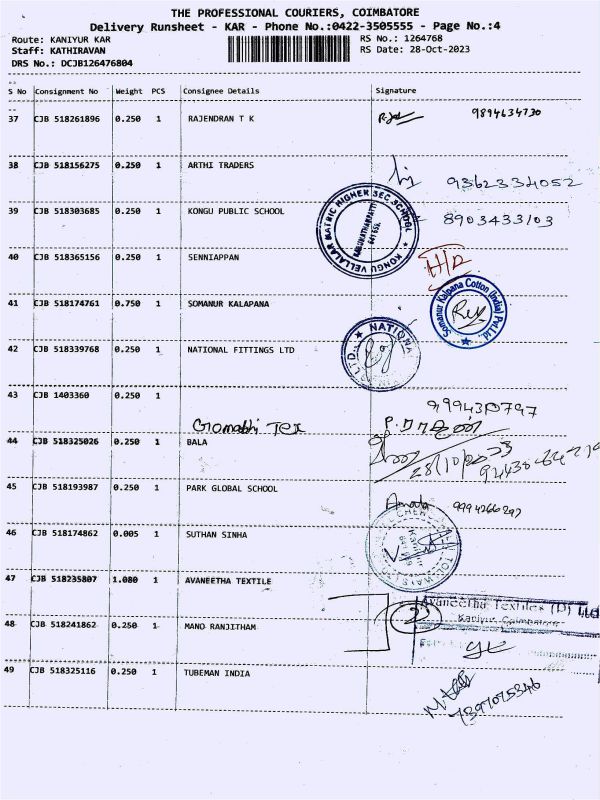 THE PROFESSIONAL COURIERS, COIMBATORE
Delivery Runsheet - KAR - Phone No.:0422-3505555 - Page No.:4
Route: KANIYUR KAR RS No.: 1264768
Staff: KATHIRAVAN RS Date: 28-Oct-2023
DRS No.: DCJB126476804
S No Consignment No Weight PCS Consignee Details Signature
37 CJB 518261896 0.250 1 RAJENDRAN T K 9894634730
38 CJB 518156275 0.250 1 ARTHI TRADERS 9362334052
39 CJB 518303685 0.250 1 KONGU PUBLIC SCHOOL 8903433103
KONGU VELLALAR MATRIC HIGHER SEC SCHOOL
40 CJB 518365156 0.250 1 SENNIAPPAN H/D
41 CJB 518174761 0.750 1 SOMANUR KALAPANA
Somanur Kalpana Cotton (India) Pvt Ltd
42 CJB 518339768 0.250 1 NATIONAL FITTINGS LTD
NATIONA
43 CJB 1403360 0.250 1
Gomathi Tex
44 CJB 518325026 0.250 1 BALA
28/10/2023
45 CJB 518193987 0.250 1 PARK GLOBAL SCHOOL
46 CJB 518174862 0.005 1 SUTHAN SINHA
47 CJB 518235807 1.080 1 AVANEETHA TEXTILE
Avaneetha Textiles (P) Ltd
Kaniyur, Coimbatore
48 CJB 518241862 0.250 1 MANO RANJITHAM 2
49 CJB 518325116 0.250 1 TUBEMAN INDIA
7397075346